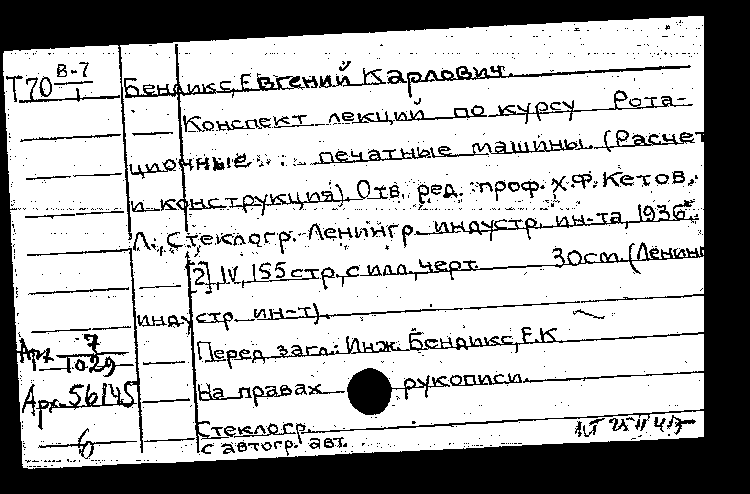 Т70 В-7/1
Бендикс, Евгений Карлович.
Конспект лекций по курсу Рота-
ционные печатные машины. (Расчет
и конструкция). Отв. ред. проф. Х.Ф. Кетов.
Л., Стеклогр. Ленингр. индустр. ин-та, 1936.
[2], IV, 155 стр., с илл., черт. 30см. (Ленинг
индустр. ин-т).
Арх. 7/1029
Перед загл.: Инж. Бендикс, Е.К
Арх. 56145
На правах рукописи.
Стеклогр.
б
с автогр. авт.